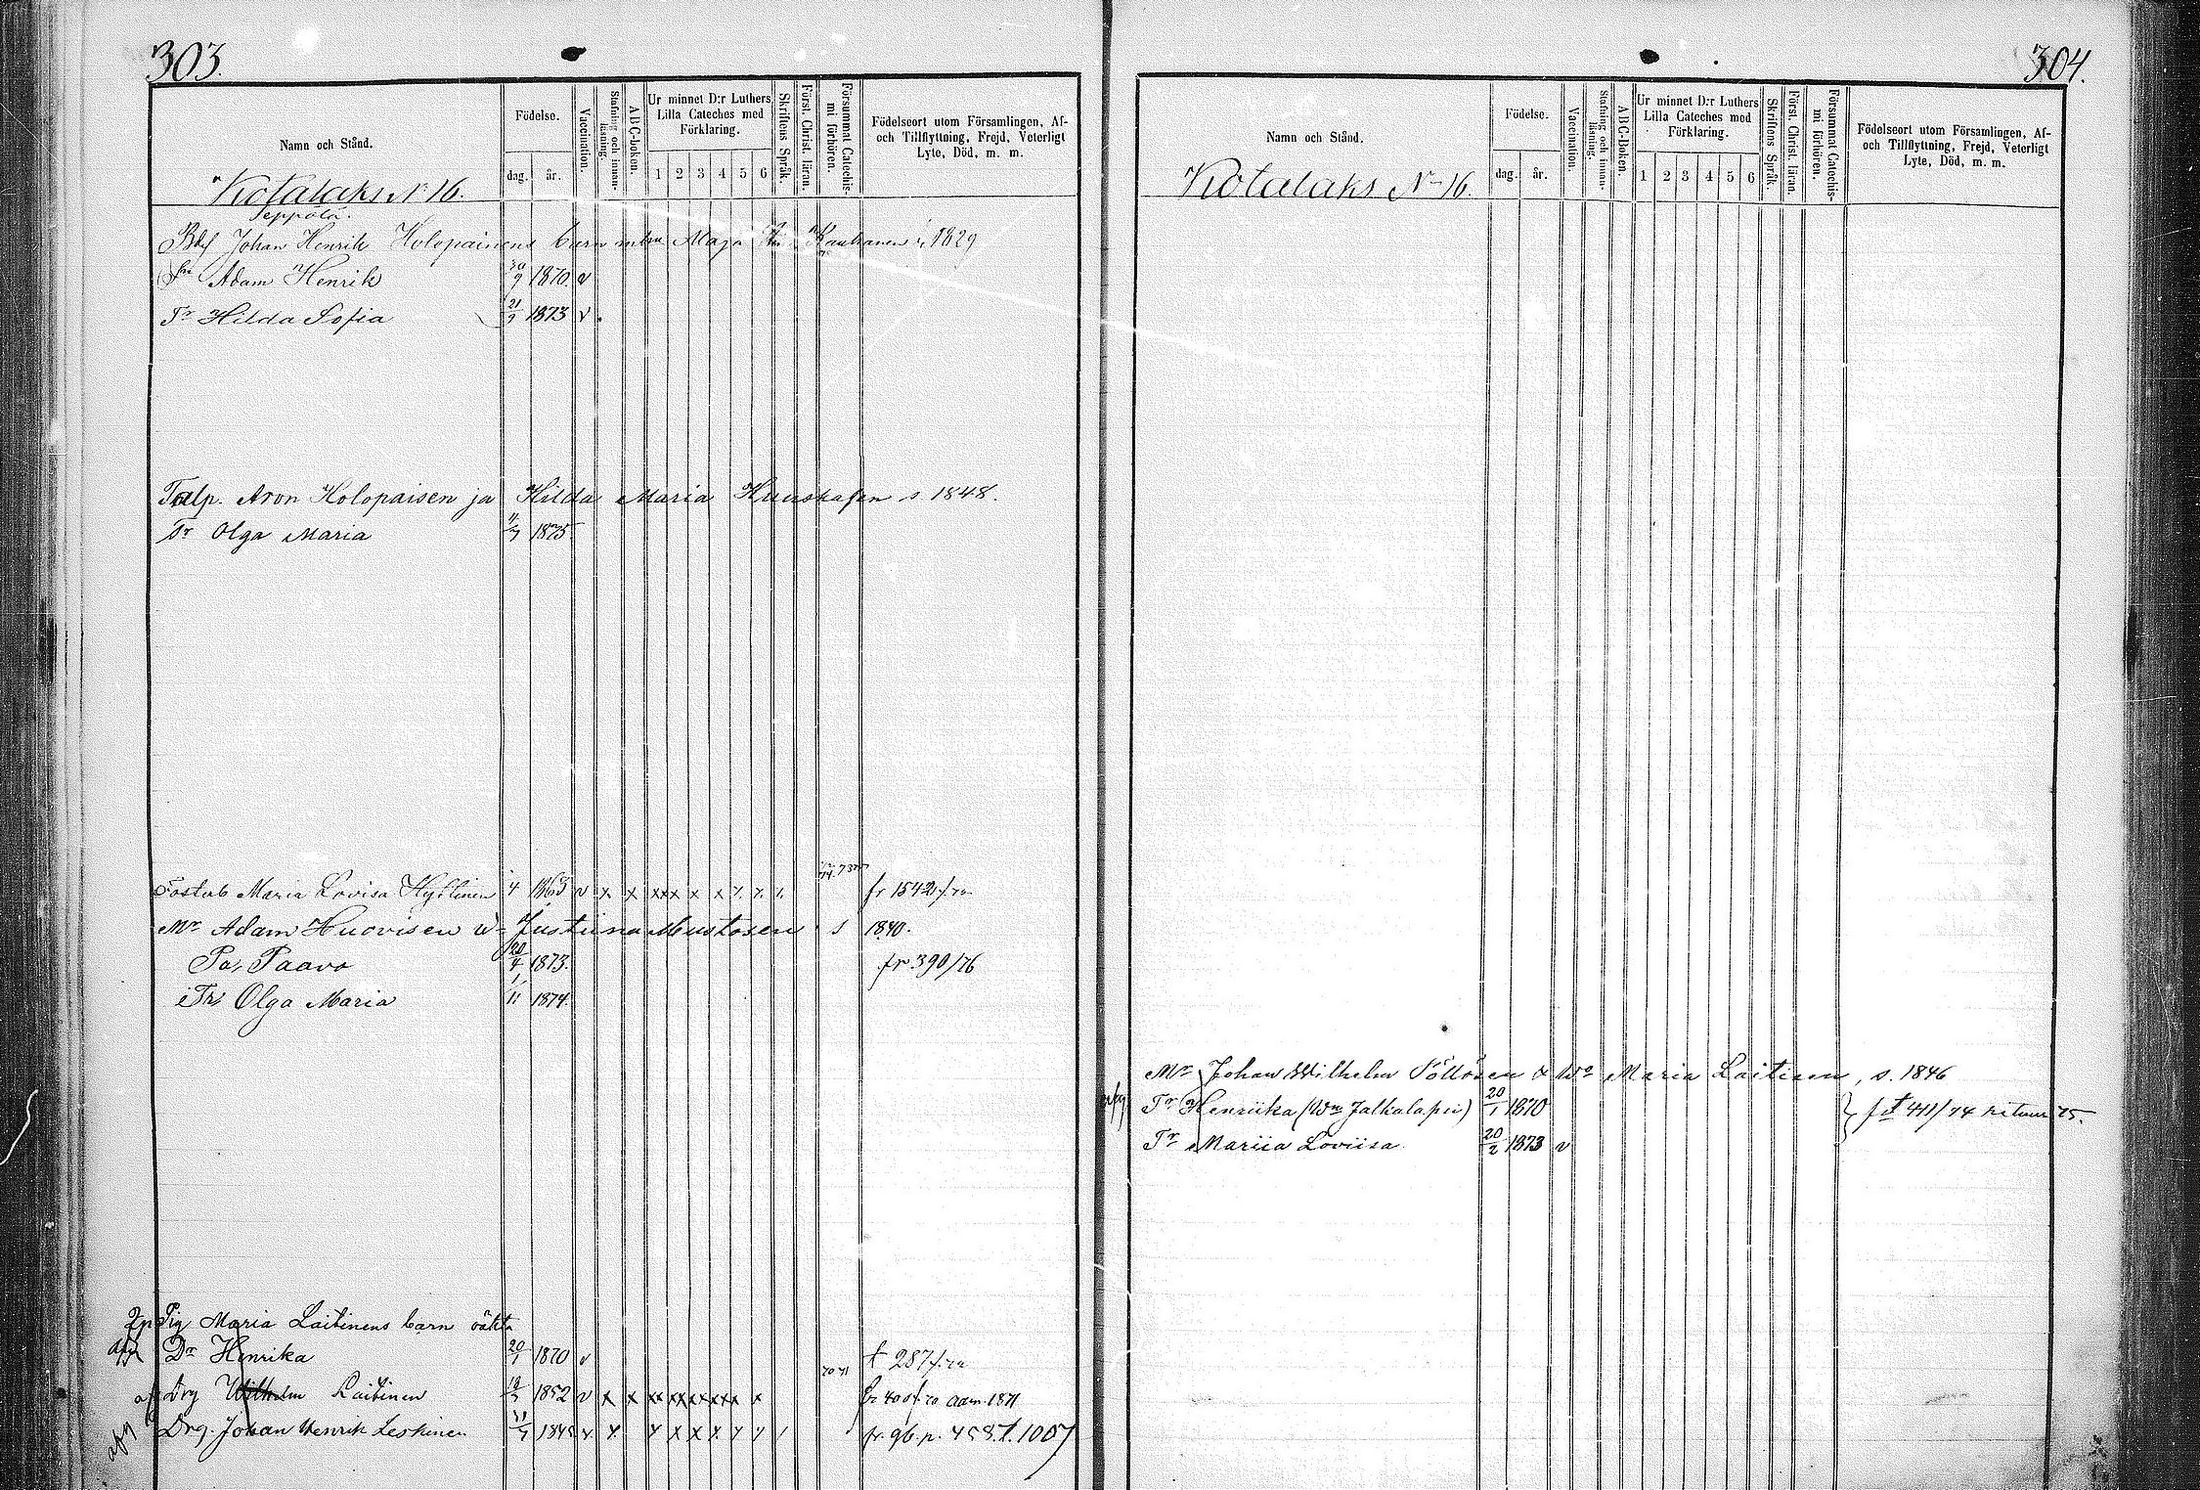 303.
Namn och Stånd.
Födelse.
dag. år.
Vaccination.
Stafning och innanläsning
A B C-boken.
Ur minnet D:r Luthers
Lilla Cateches med
Förklaring.
1 2 3 4 5 6
Skriftens Språk.
Först. Christ. läran.
Försummat Catechismi förhören.
Födelseort utom Församlingen, Af-
och Tillflyttning, Frejd, Veterligt
Lyte, Död, m. m.
Kotalaks N 16.
Seppälä.
Johan Henrik Holopainens barn Maja Kauhanen 1829
Adam Henrik 30/9 1870 v
Tr Hilda Sofia 21/9 1873 v
Talp. Aron Holopaisen ja Hilda Maria s 1848.
Tr Olga Maria 11/7 1875
Maria Lovisa 4 1863 v x x x x x x x fr 1542
Mr Adam Huovisen w Justiina Mustosen s 1840.
Po, Paavo 20/4 1873. fr. 390/76
Tr, Olga Maria 1/11 1874.
Pig Maria Laitinens barn oäkta
Dr Henrika 20/1 1870 v
Drg Wilhelm Laitinen 18/7 1852 v x x 70 71 adm. 1871
Drg. Johan Henrik Leskinen fr. 96. p. 458. 1007
304.
Namn och Stånd.
Födelse.
dag. år.
Vaccination.
Stafning och innanläsning.
A B C-Boken.
Ur minnet D:r Luthers
Lilla Cateches med
Förklaring.
1 2 3 4 5 6
Skriftens Språk.
Först. Christ. läran.
Försummat Catechismi förhören.
Födelseort utom Församlingen, Af-
och Tillflyttning, Frejd, Veterligt
Lyte, Död, m. m.
Kotalaks N 16.
Mr Johan Wilhelm Pöllösen & Wo Maria Laitisen, s. 1846
Tr Henriika 20/1 1870 411/74 retour 75.
Tr Mariia Loviisa 20/2 1873 v